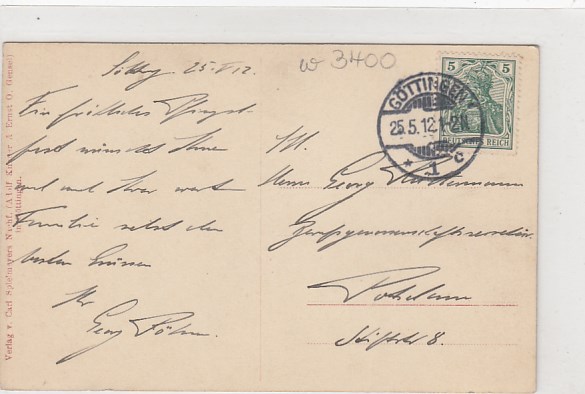 w 3400
Göttg. 25.V.12.
Ein fröhliches Pfingst-
fest wünscht Ihnen
und Ihrer
Familie nebst den
besten Grüssen
Ihr
Georg Böhm.
Verlag v. Carl Spielmeyers Nachf. (Adolf Küster & Ernst O. Gensel)
in Göttingen.
5 5
DEUTSCHES REICH
GÖTTINGEN
25.5.12.1-2N
* 1 c
Herrn Georg
Berufsgenossenschaftssekretär
Potsdam
Stiftstr 8.